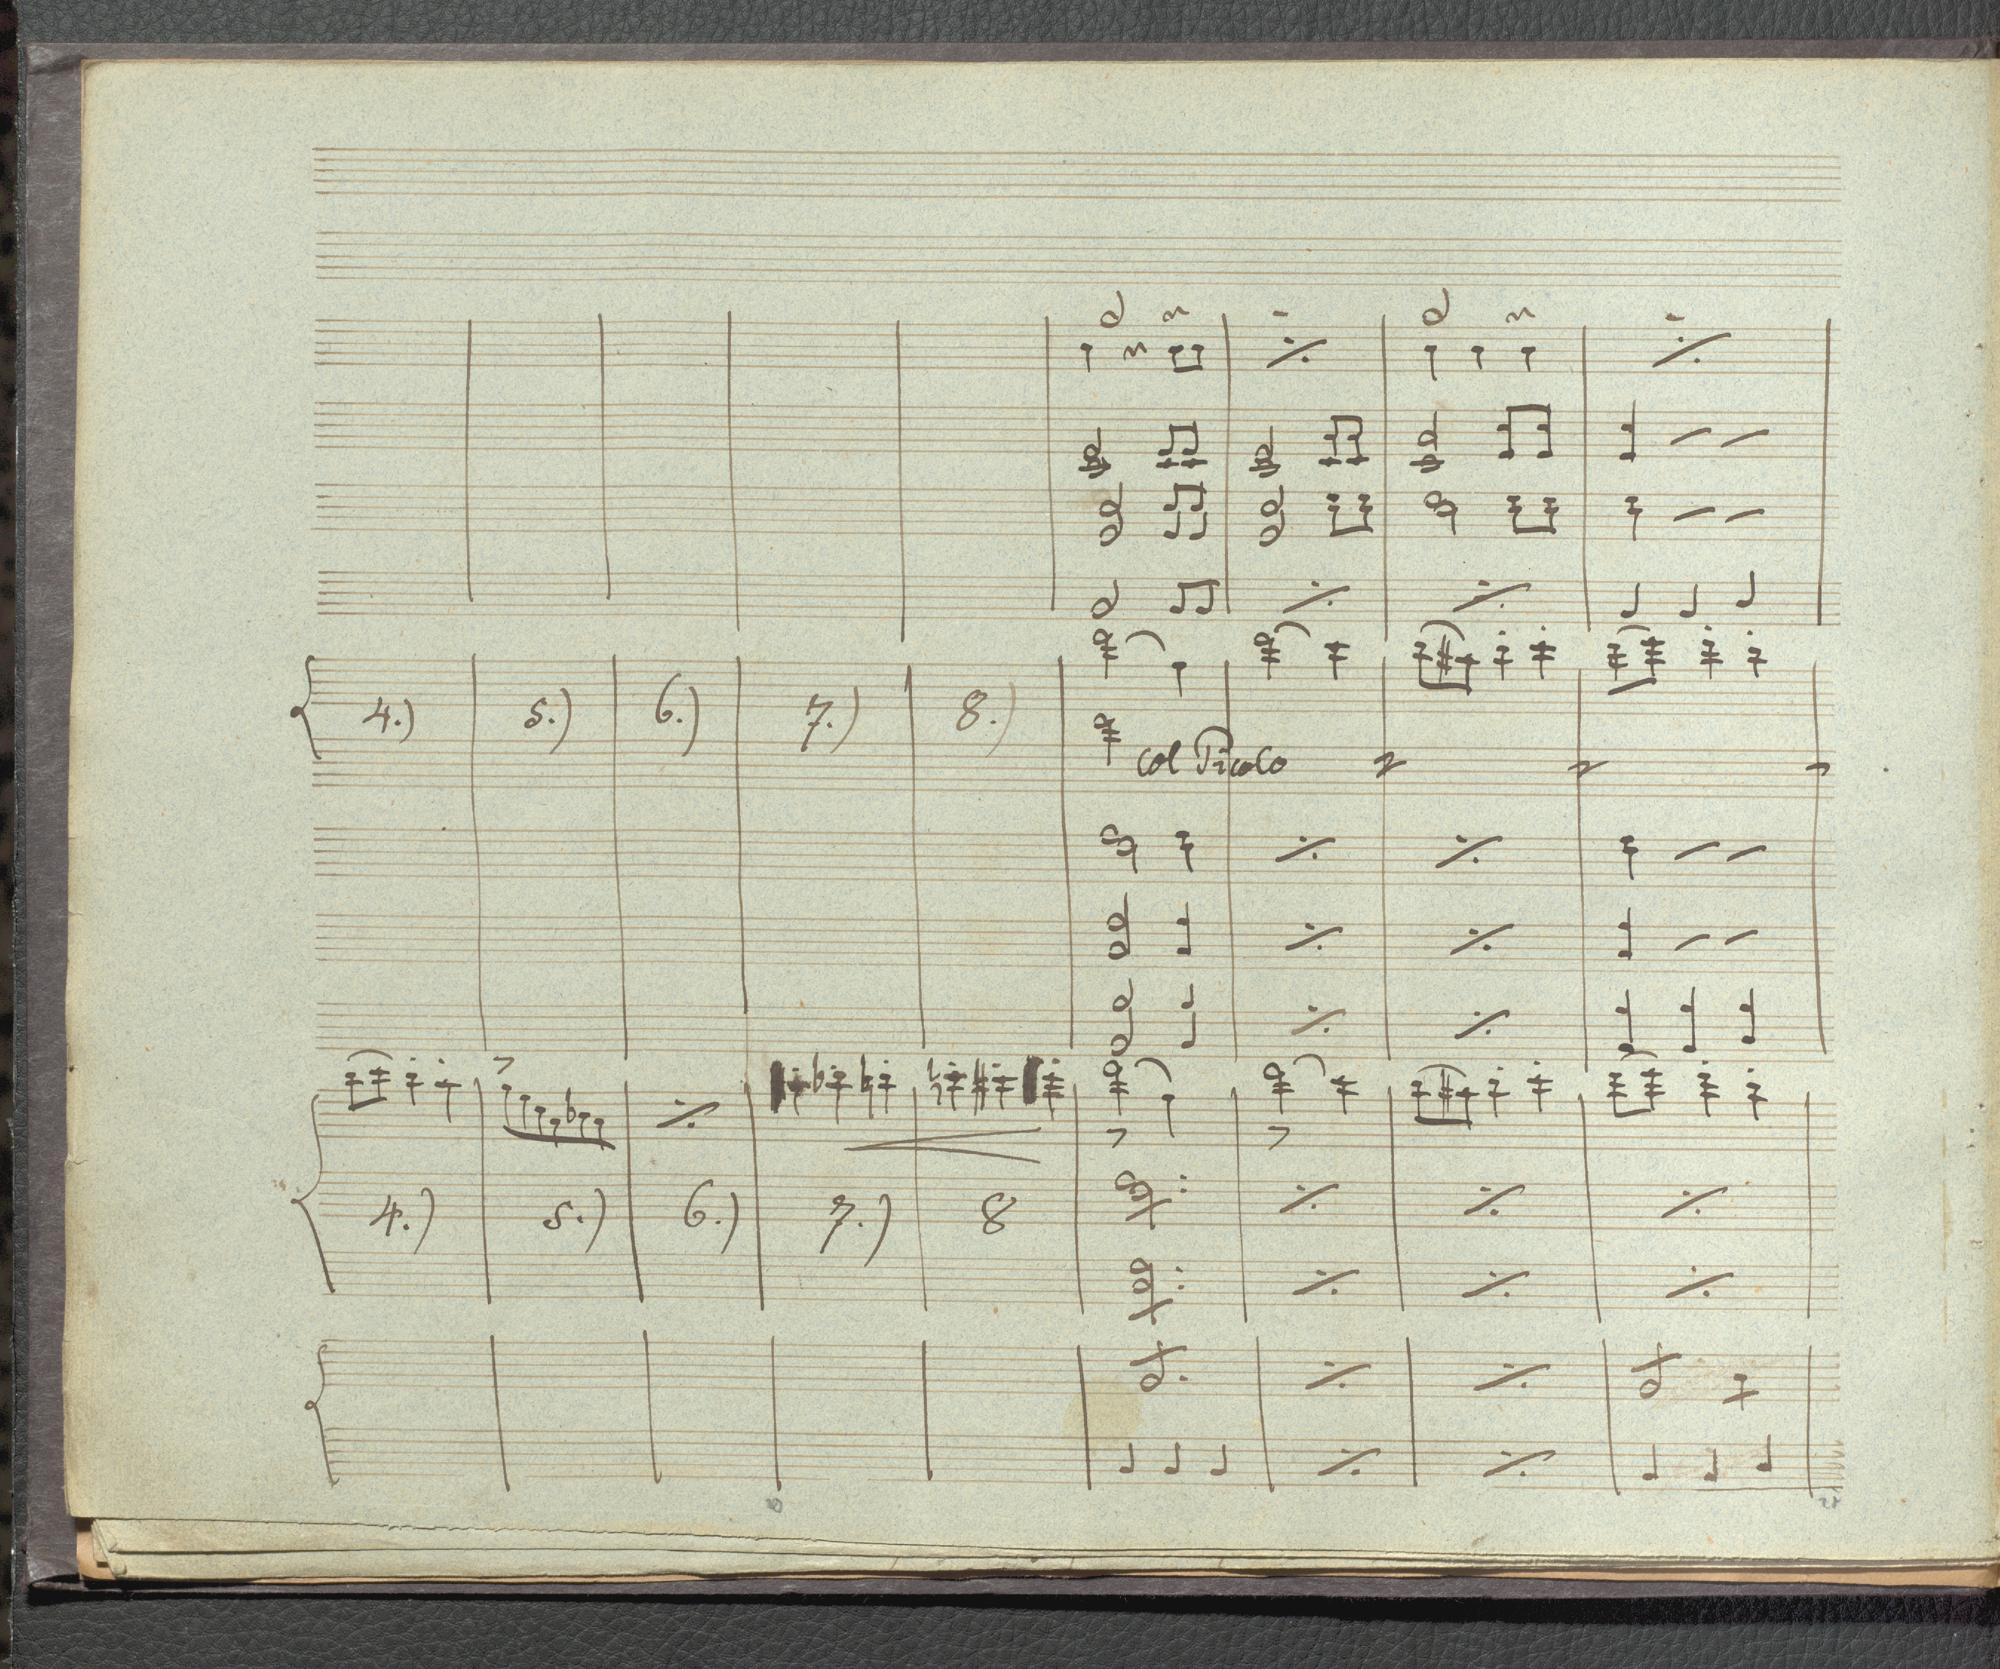 4.) 5.) 6.) 7.) 8.)
col Picolo
4.) 5.) 6.) 7.) 8